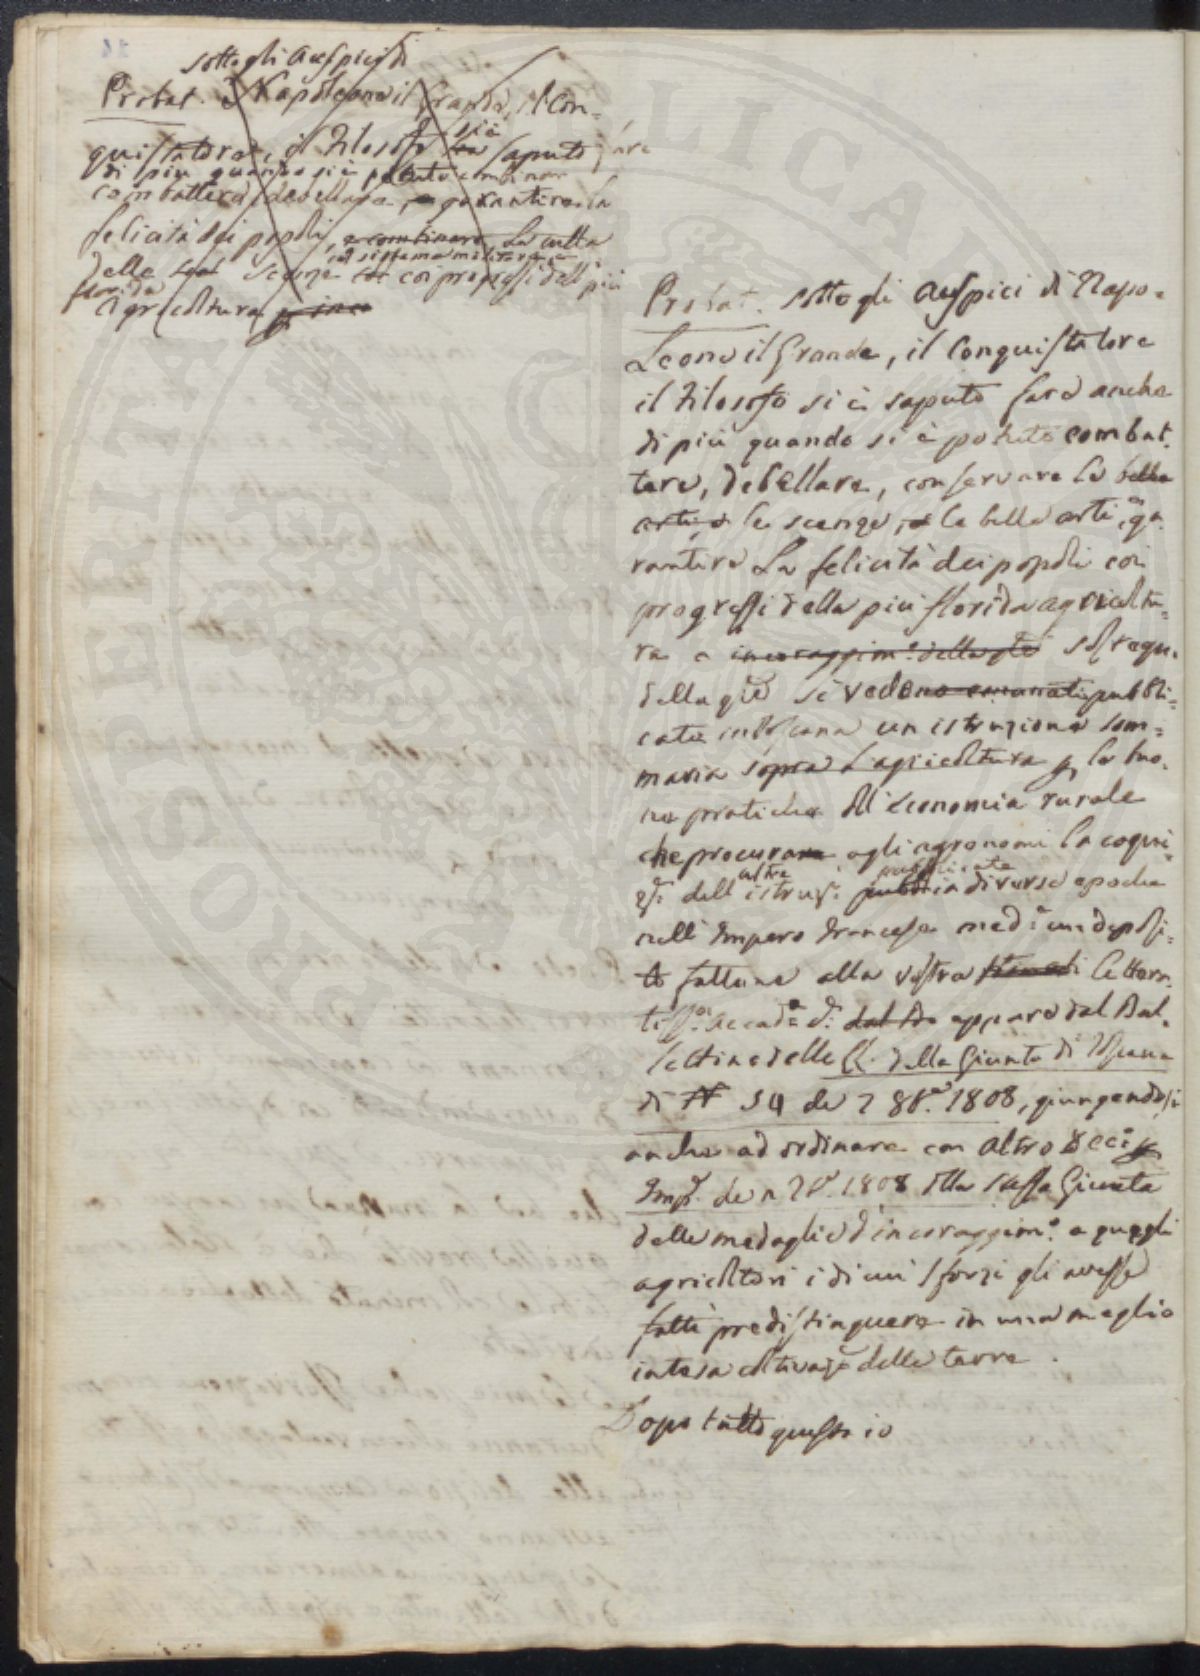 sotto gli auspici di
Probat. è Napoleone il Grande, il Con=
quistatore, il Filosofo si è saputo fare
di più quando si è potuto combinare
combattere, debellare, e garantire la
felicità dei popoli, e combinare la culla
col sistema militare
delle scienze coi progressi della più
florida
agricoltura
Probat. sotto gli auspici di Napo=
leone il Grande, il Conquistatore
il Filosofo si è saputo fare anche
di più quando si è potuto combat=
tere, debellare, conservare le belle
arti, e le scienze, e le belle arti, e ga
rantire la felicità dei popoli coi
progressi della più florida agricoltu=
ra e incoraggim.º delle sostegno
della q.le si vedono emanati pubbli=
cate in Toscana un istruzione som=
maria sopra l'agricoltura p le buo=
ne pratiche dell'economia rurale
che procurare agli agronomi la cogni=
altre pubblicate
dell istruz. in diverse epoche
nell Impero Francese med.e un deposi=
to fattone alla vostra letterr.
accad.a appare dal Bul=
lettino delle LL. della Giunta di Toscana
di N 54 de 7 88.e 1808, giungendosi
anche ad ordinare con altro Dec.º
Imp. de 1808 alla stessa Giunta
delle medaglie d'incoraggim.º a quegli
agricoltori i di cui sforzi gli avesse
fatti predistinguere in una meglio
intesa coltivaz.e delle terre.
Dopo tutto questo io